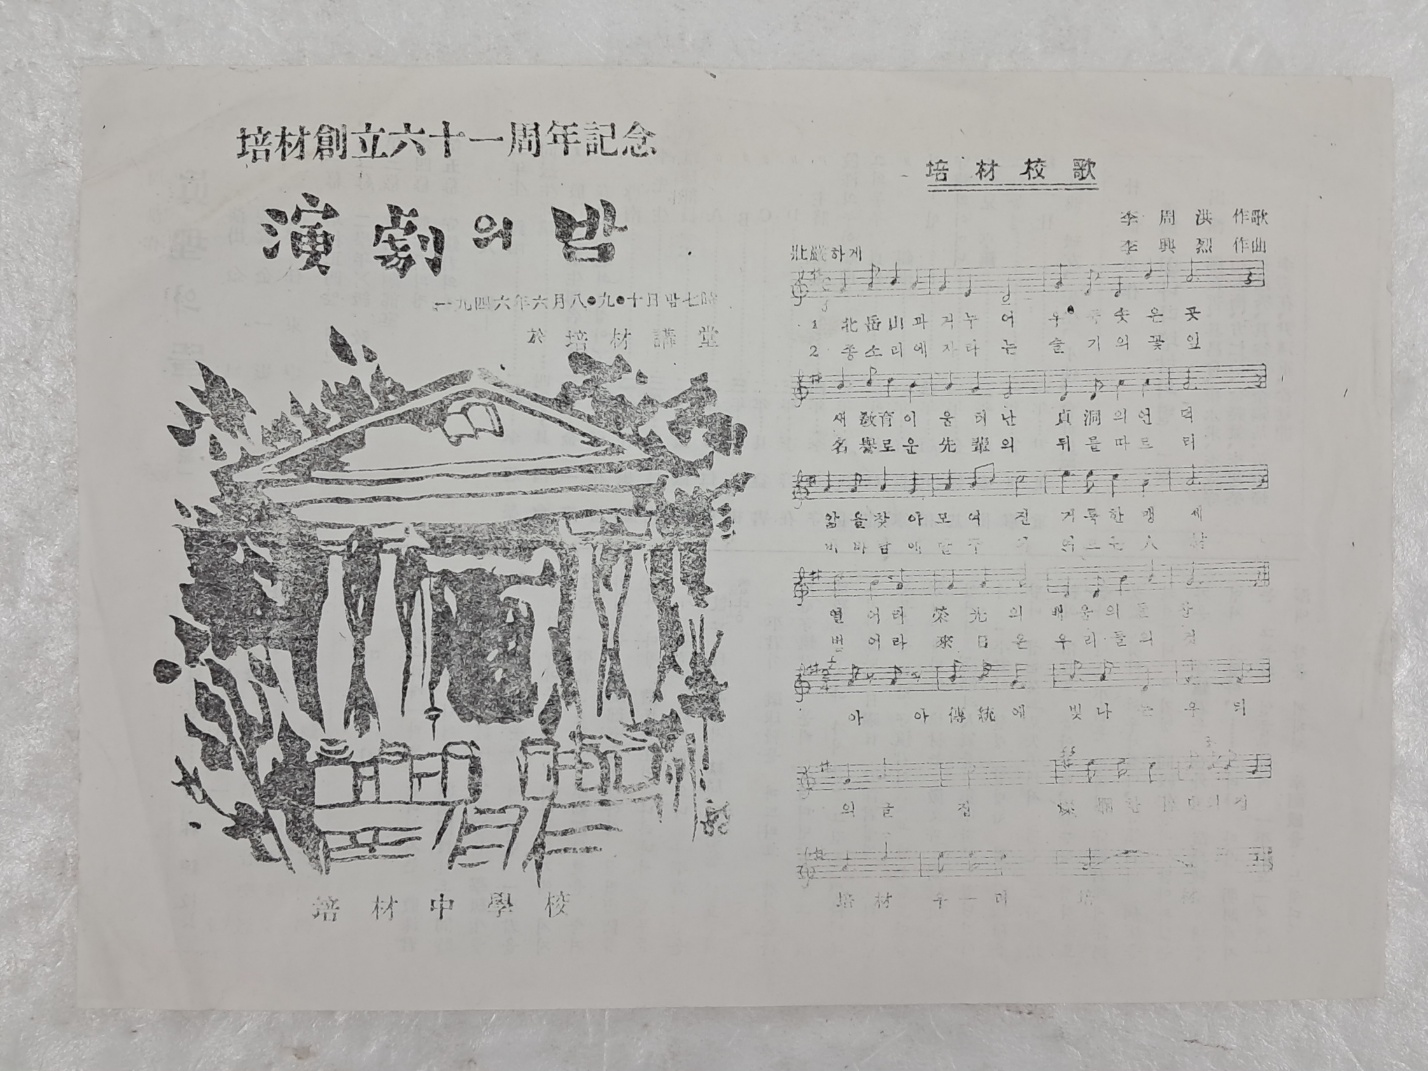 培材創立六十一周年記念
演劇의 밤
一九四六年六月八●九●十日밤七時
於 培材講堂
培材中學校
培材校歌
李周洪 作歌
李興烈 作曲
壯嚴하게
1 北岳山과 겨누어 우 솟은 곳
2 종소리에 자라는 슬기의 꽃잎
새 敎育이 움터난 貞洞의 언덕
名譽로운 先輩의 뒤를 따르러
앎을 찾아 모여진 거룩한 맹세
비바람에
열어라 榮光의 배움의 동산
번어라 來日은 우리들의 것
아 아 傳統에 빛나는 우리
의 글집
培材 우ー리 培材